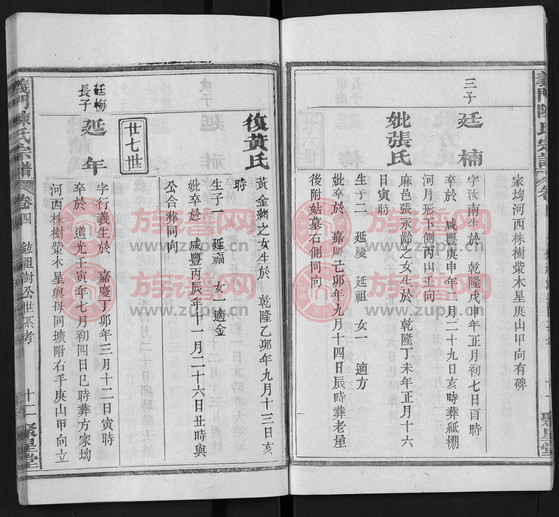 家塆河西株樹蓥木星庚山甲向有碑
三子
廷楠
字汝南生於 乾隆戊 年正月初七日酉時
卒於 咸豐庚申年二月二十九日亥時葬紙棚
河月形下側丙山壬向
妣張氏
麻色張永節之女生於 乾隆丁未年正月十六
日寅時
生子一 延祖 女一 適方
卒於 嘉慶己卯年九月十四日辰時葬老屋
後附姑墓右側同向
復黃氏
黃金緒之女生於 乾隆乙卯年九月十三日亥
時
生子一 延福 女一 適金
妣卒於 咸豐丙辰年十一月二十六日丑時與
公合葬同向
廿七世
廷梅
長子
延年
字行義生於 嘉慶丁卯年三月十二日寅時
卒於 道光壬寅年七月初四日巳時葬方家塆
河西株樹蓥木星與母同壙附右手庚山甲向立
義門陳氏宗譜
卷四
公世系考
十一
聚星堂
義門陳氏宗譜
聚星堂
族譜网
www.zupu.cn